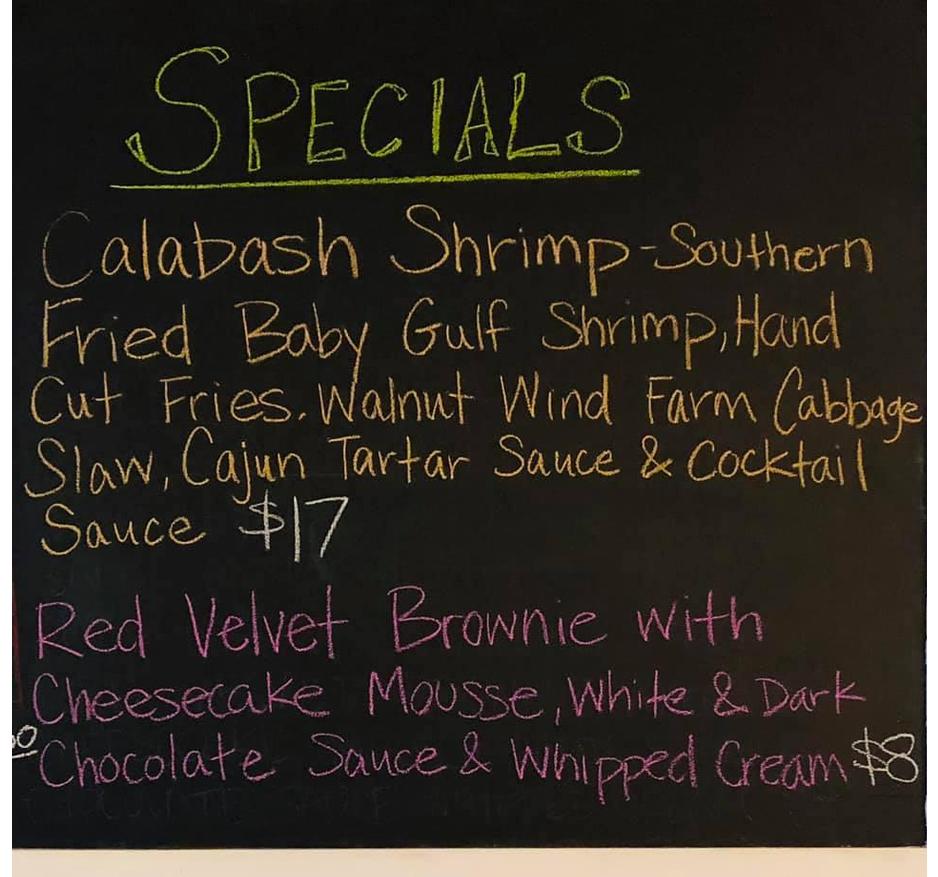 SPECIALS
Calabash Shrimp-Southern
Fried Baby Gulf Shrimp, Hand
Cut Fries. Walnut Wind Farm Cabbage
Slaw, Cajun Tartar Sauce & Cocktail
Sauce $17
Red Velvet Brownie with
Cheesecake Mousse, White & Dark
Chocolate Sauce & Whipped Cream $8